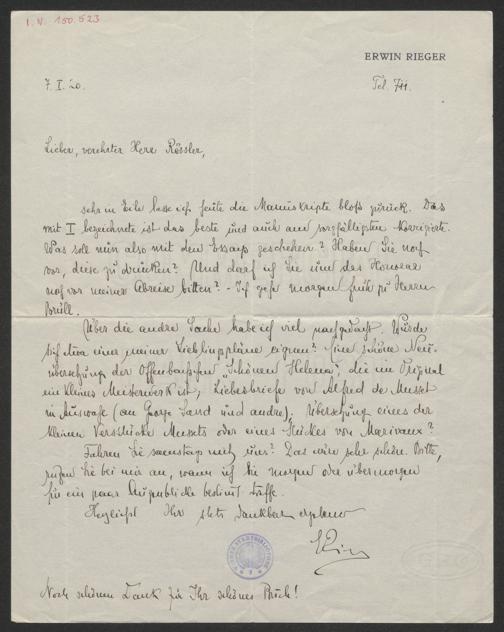 I. N. 150.523
ERWIN RIEGER
7. I. 20.
Tel. 711.
Lieber, verehrter Herr Rössler,
sehr in Eile lasse ich heute die Manuskripte bloß zurück. Das
mit I bezeichnete ist das beste und auch am sorgfältigsten korrigierte.
Was soll nun also mit den Essays geschehen? Haben Sie noch
vor, diese zu drucken? Und darf ich Sie um das Honorar
noch vor meiner Abreise bitten? - Ich gehe morgen früh zu Herrn
Brüll.
Über die andre Sache habe ich viel nachgedacht. Würde
sich etwa einer meiner Lieblingspläne eignen? Eine schöne Neu-
übersetzung der Offenbachschen "Schönen Helena", die im Original
ein kleines Meisterwerk ist, Liebesbriefe von Alfred de Musset
in Auswahl (an George Sand und andre); Übersetzung eines der
kleinen Versstücke Mussets oder eines Stückes von Marivaux?
Fahren Sie samstag mit uns? Das wäre sehr schön. Bitte,
rufen Sie bei mir an, wann ich Sie morgen oder übermorgen
für ein paar Augenblicke bestimmt treffe.
Herzlichst Ihr stets dankbar ergebener
Noch schönen Dank für Ihr schönes Buch!